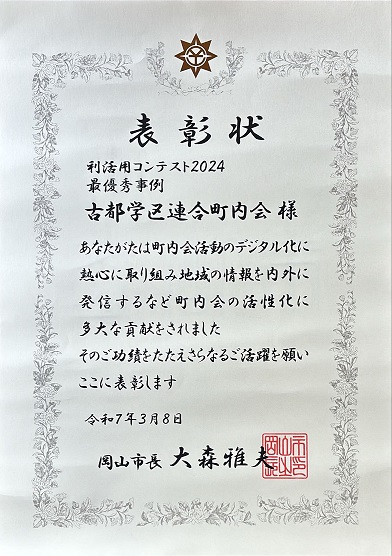 表彰状
利活用コンテスト2024
最優秀事例
古都学区連合町内会 様
あなたがたは町内会活動のデジタル化に
熱心に取り組み地域の情報を内外に
発信するなど町内会の活性化に
多大な貢献をされました
そのご功績をたたえさらなるご活躍を願い
ここに表彰します
令和7年3月8日
岡山市長 大森雅夫